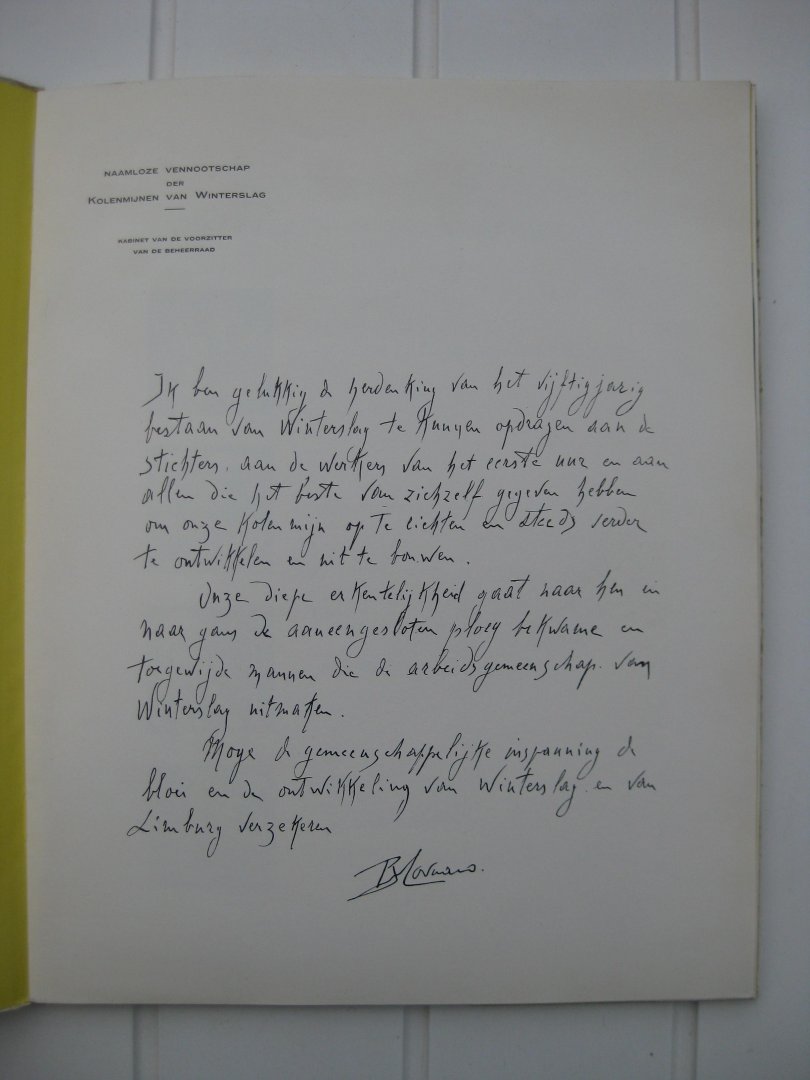 NAAMLOZE VENNOOTSCHAP
DER
KOLENMIJNEN VAN WINTERSLAG
KABINET VAN DE VOORZITTER
VAN DE BEHEERRAAD
Ik ben gelukkig de herdenking van het vijftigjarig
bestaan van Winterslag te kunnen opdragen aan de
stichters, aan de werkers van het eerste uur en aan
allen die het beste van zichzelf gegeven hebben
om onze kolenmijn op te richten en steeds verder
te ontwikkelen en uit te bouwen.
Onze diepe erkentelijkheid gaat naar hen en
naar gans de aaneengesloten ploeg bekwame en
toegewijde mannen die de arbeidsgemeenschap van
Winterslag uitmaken.
Moge de gemeenschappelijke inspanning de
bloei en de ontwikkeling van Winterslag en van
Limburg verzekeren